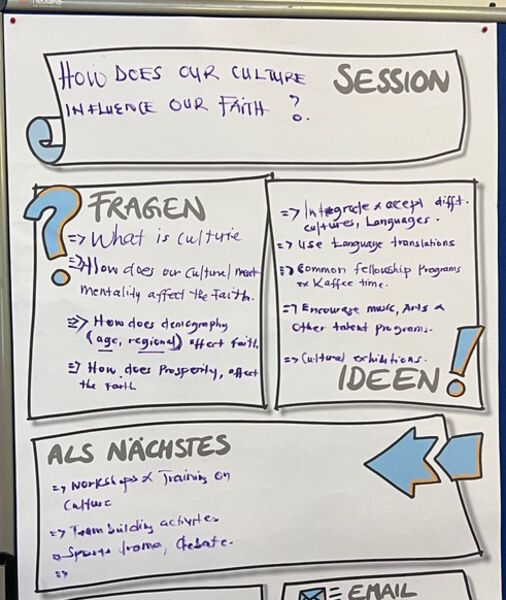 HOW DOES OUR CULTURE
INFLUENCE OUR FAITH ?
SESSION
FRAGEN
=> What is culture
=> How does our cultural
mentality affect the Faith.
=> How does demography
(age, regional) affect faith.
=> How does Prosperity, affect
the Faith
=> Integrate & accept difft.
cultures, Languages.
=> Use Language translations
=> Common fellowship Programs
ex Kaffee time.
=> Encourage music, Arts &
Other talent programs.
=> Cultural exhibitions.
IDEEN
ALS NÄCHSTES
=> Workshops & Training on
Culture
=> Team building activites
=> Sports drama, debate.
=>
EMAIL